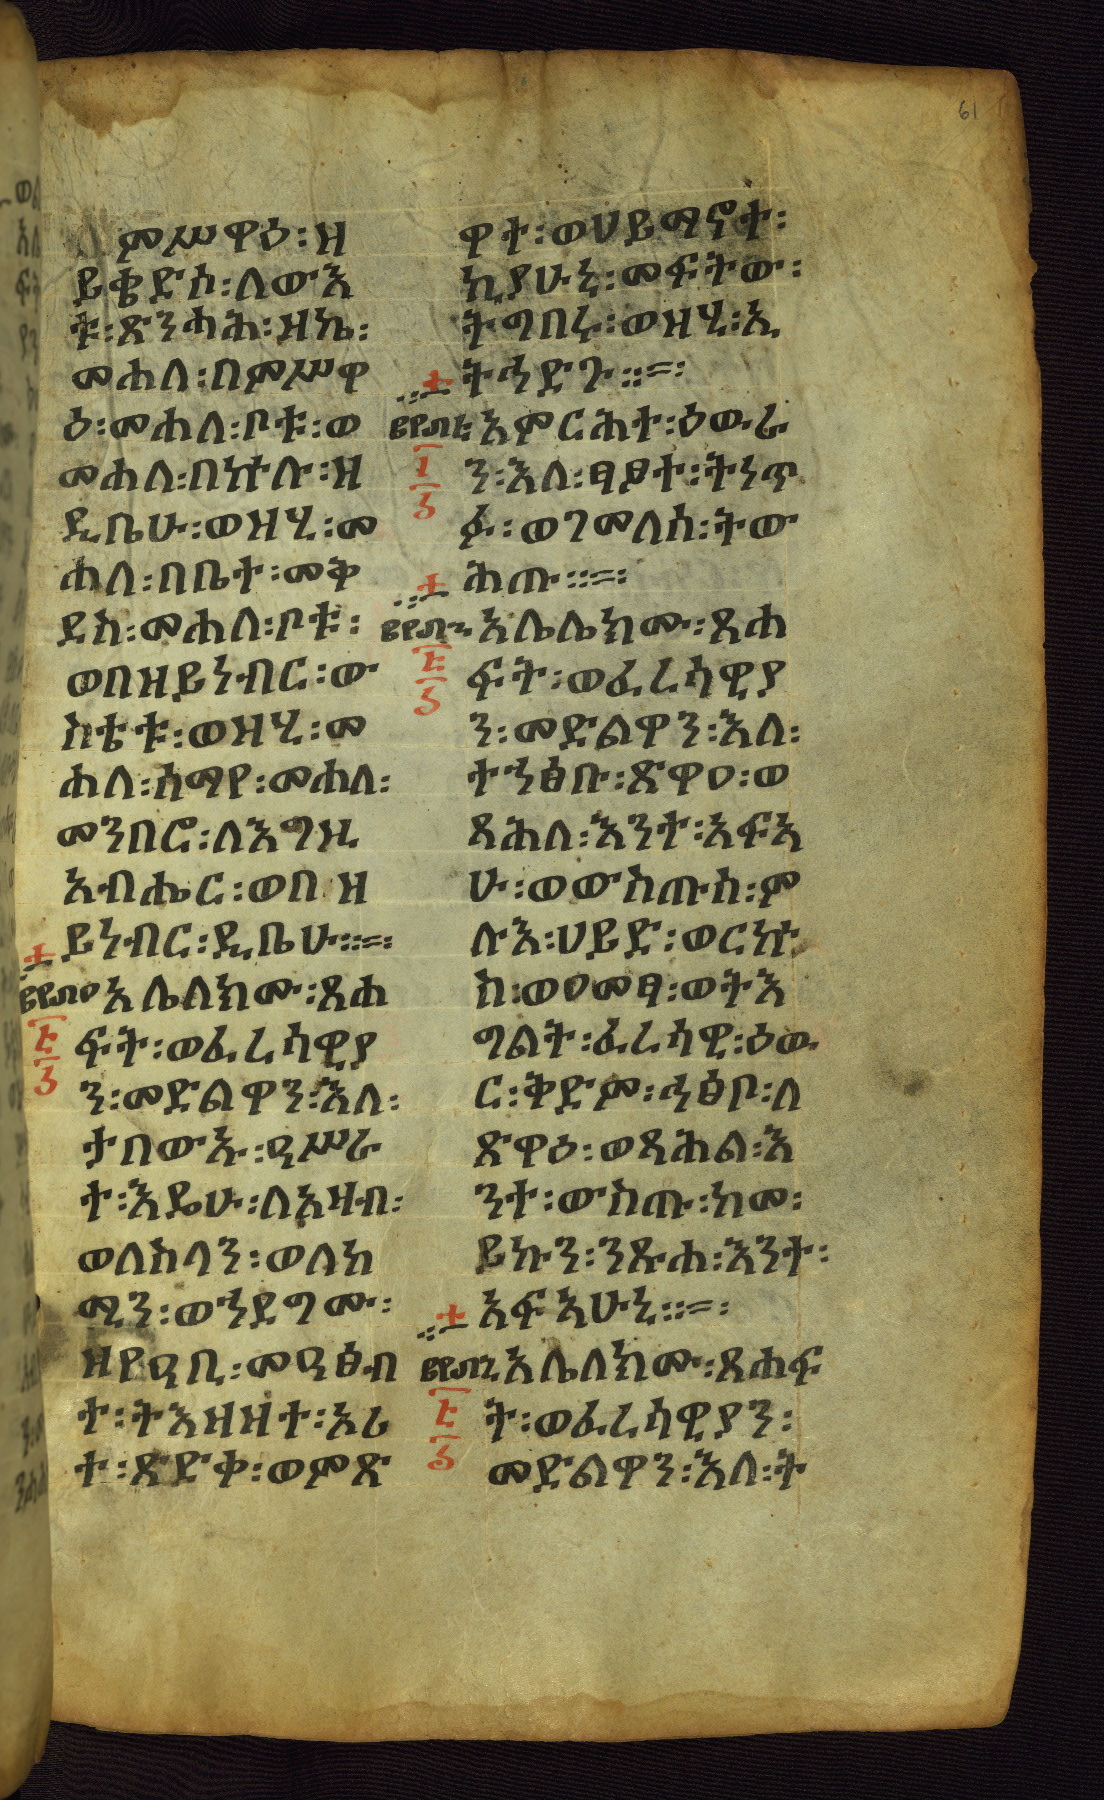 61
ምሥዋዕ፡ዘ
ይቄድሶ፡ለውእ
ቱ፡ጽንሓሕ፡ዝኬ፡
መሐለ፡በምሥዋ
ዕ፡መሐለ፡ቦቱ፡ወ
መሐለ፡በኵሉ፡ዘ
ዲቤሁ፡ወዝሂ፡መ
ሐለ፡በቤተ፡መቅ
ደስ፡መሐለ፡ቦቱ፡
ወበዝይነብር፡ው
ስቴቱ፡ወዝሂ፡መ
ሐለ፡ሰማየ፡መሐለ፡
መንበሮ፡ለእግዚ
አብሔር፡ወበዘ
ይነብር፡ዲቤሁ፡፡፡
አሌለክሙ፡ጸሐ
ፍት፡ወፈሪሳዊያ
ን፡መድልዋን፡እለ፡
ታበውኡ፡ዓሥራ
ተ፡እዴሁ፡ለአዛብ፡
ወለስላን፡ወለከ
ሚን፡ወኀደግሙ፡
ዘየዓቢ፡መዓፅብ
ተ፡ትእዘዘተ፡አሪ
ተ፡ጽድቀ፡ወምጽ
ዋተ፡ወሀይማኖተ፡
ኪያሁኒ፡መፍትው፡
ትግበሩ፡ወዝሂ፡ኢ
ትኅድጉ፡፡
አምርሕተ፡ዕውራ
ን፡እለ፡ፃፆተ፡ትነጥ
ፉ፡ወገመለሰ፡ትው
ሕጡ፡፡
አሌሌክሙ፡ጸሐ
ፍት፡ወፈሪሳዊያ
ን፡መድልዋን፡እለ፡
ተኀፅቡ፡ጽዋዐ፡ወ
ጻሕለ፡እንተ፡አፍአ
ሁ፡ወውስጡሰ፡ም
ሉእ፡ሀይድ፡ወርኩ
ሰ፡ወዐመፃ፡ወትእ
ግልት፡ፈሪሳዊ፡ዕው
ር፡ቅድም፡ሓፅቦ፡ለ
ጽዋዕ፡ወጻሕል፡እ
ንተ፡ውስጡ፡ከመ፡
ይኩን፡ንጹሐ፡እንተ፡
አፍአሁኒ፡፡
አሌለክሙ፡ጸሐፍ
ት፡ወፈሪሳዊያን፡
መድልዋን፡እለ፡ት